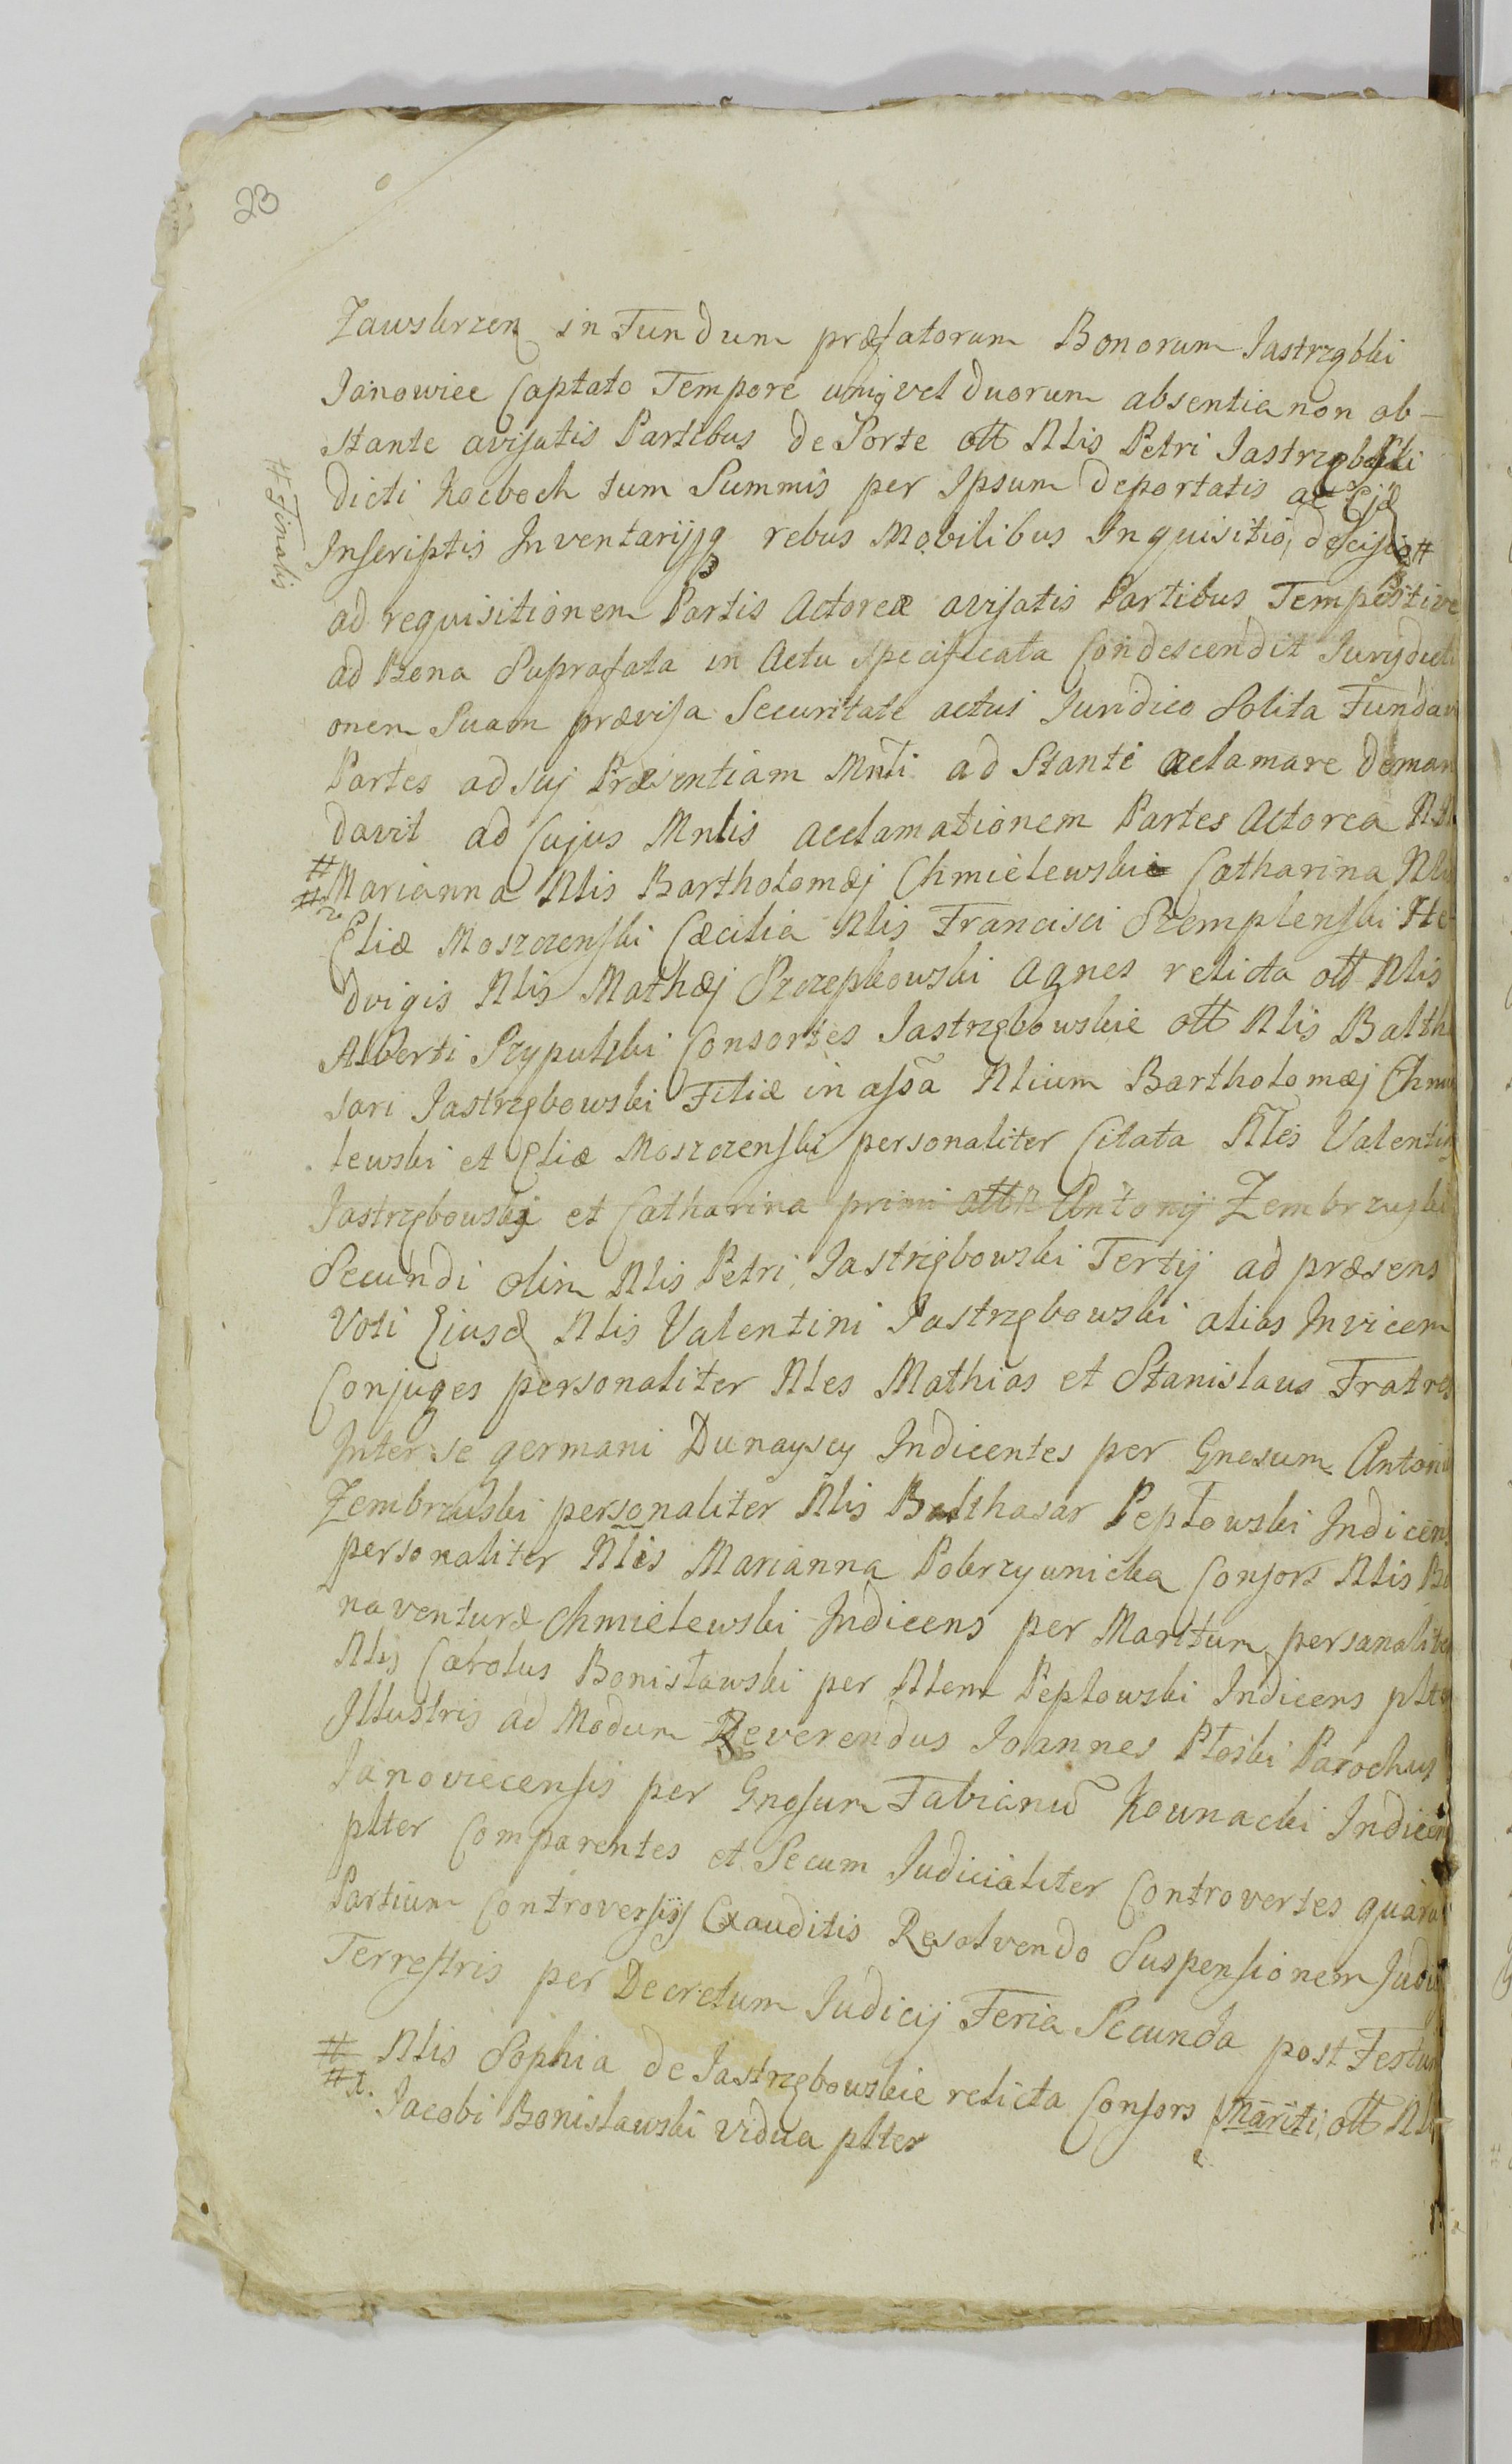 23
Zawskrzen in Fundum præfatorum Bonorum Jastrzębki
Janowiec Captato Tempore unig vel duorum absentia non ob-
stante avisatis Partibus de Sorte ott Nlis Petri Jastrzębski
dicti Kocboch tum Summis per Ipsum deportatis ac Ejd
Inscriptis Inventarijsq rebus Mobilibus Inquisitio, descisio #
# Finalis
ad requisitionem Partis Actoreæ avisatis Partibus Tempestive
ad Bona Suprafata in Actu specificata Condescendit Jurysdicti
onem Suam prævisa Securitate actui Juridico Solita Fundavi
Partes ad suj Præsentiam Mnti ad Stanti aclamare deman
davit ad Cujus Mnlis acclamationem Partes Actorea
## Marianna Nlis Bartholomæj Chmielewski Catharina Nlis
Eliæ Moszczenski Cæcilia Nlis Francisci Szemplenski He-
dvigis Nlis Mathæj Szczepkowski Agnes relicta ott Nlis
Alberti Szypulski Consortes Jastrzębowskie ott Nlis Baltha
sari Jastrzębowski Filiæ in assã Nlium Bartholomæj Chmie
lewski et Eliæ Moszczenski personaliter Citata Nles Valentin
Jastrzębowski et Catharina primi ott Antonij Zembrzuski
Secundi olim Nlis Petri Jastrzębowski Tertij ad præsens
Voti Ejusd Nlis Valentini Jastrzębowski alias Invicem
Conjuges personaliter Nles Mathias et Stanislaus Fratres
Inter se germani Dunayscy Indicentes per Gnosum Antoni
Zembrzuski personaliter Nlis Balthasar Peptowski Indicens
personaliter Nlis Marianna Pobrzyunicka Consors Nlis Bo
naventuræ Chmielewski Indicens per Maritum personaliter
Nlis Carolus Bonisławski per Nlem Peptowski Indicens plter
Illustris ad Modum Reverendus Joannes Płoski Parochus
Janoviecensis per Gnosum Fabianũ Kownacki Indicens
plter Comparentes et Secum Judicialiter Controvertes quaru
Partium Controversijs Exauditis Resolvendo Suspensionem Judij
Terrestris per Decretum Judicij Feria Secunda post Festum
## Nlis Sophia de Jastrzębowskie relicta Consors Mariti, ott Nlis
Jacobi Bonislawski vidua plter